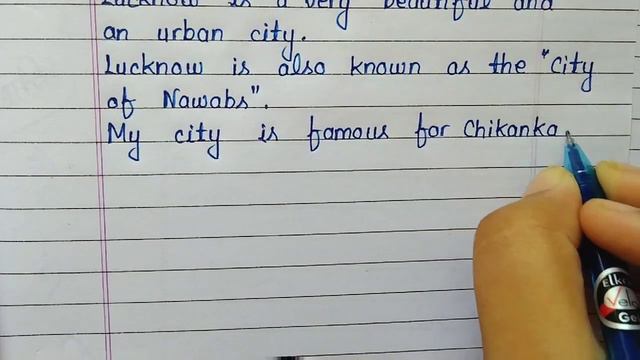 Lucknow is a very beautiful and
an urban city.
Lucknow is also known as the "City
of Nawabs".
My city is famous for Chikanka
Elk
Velo
Ge